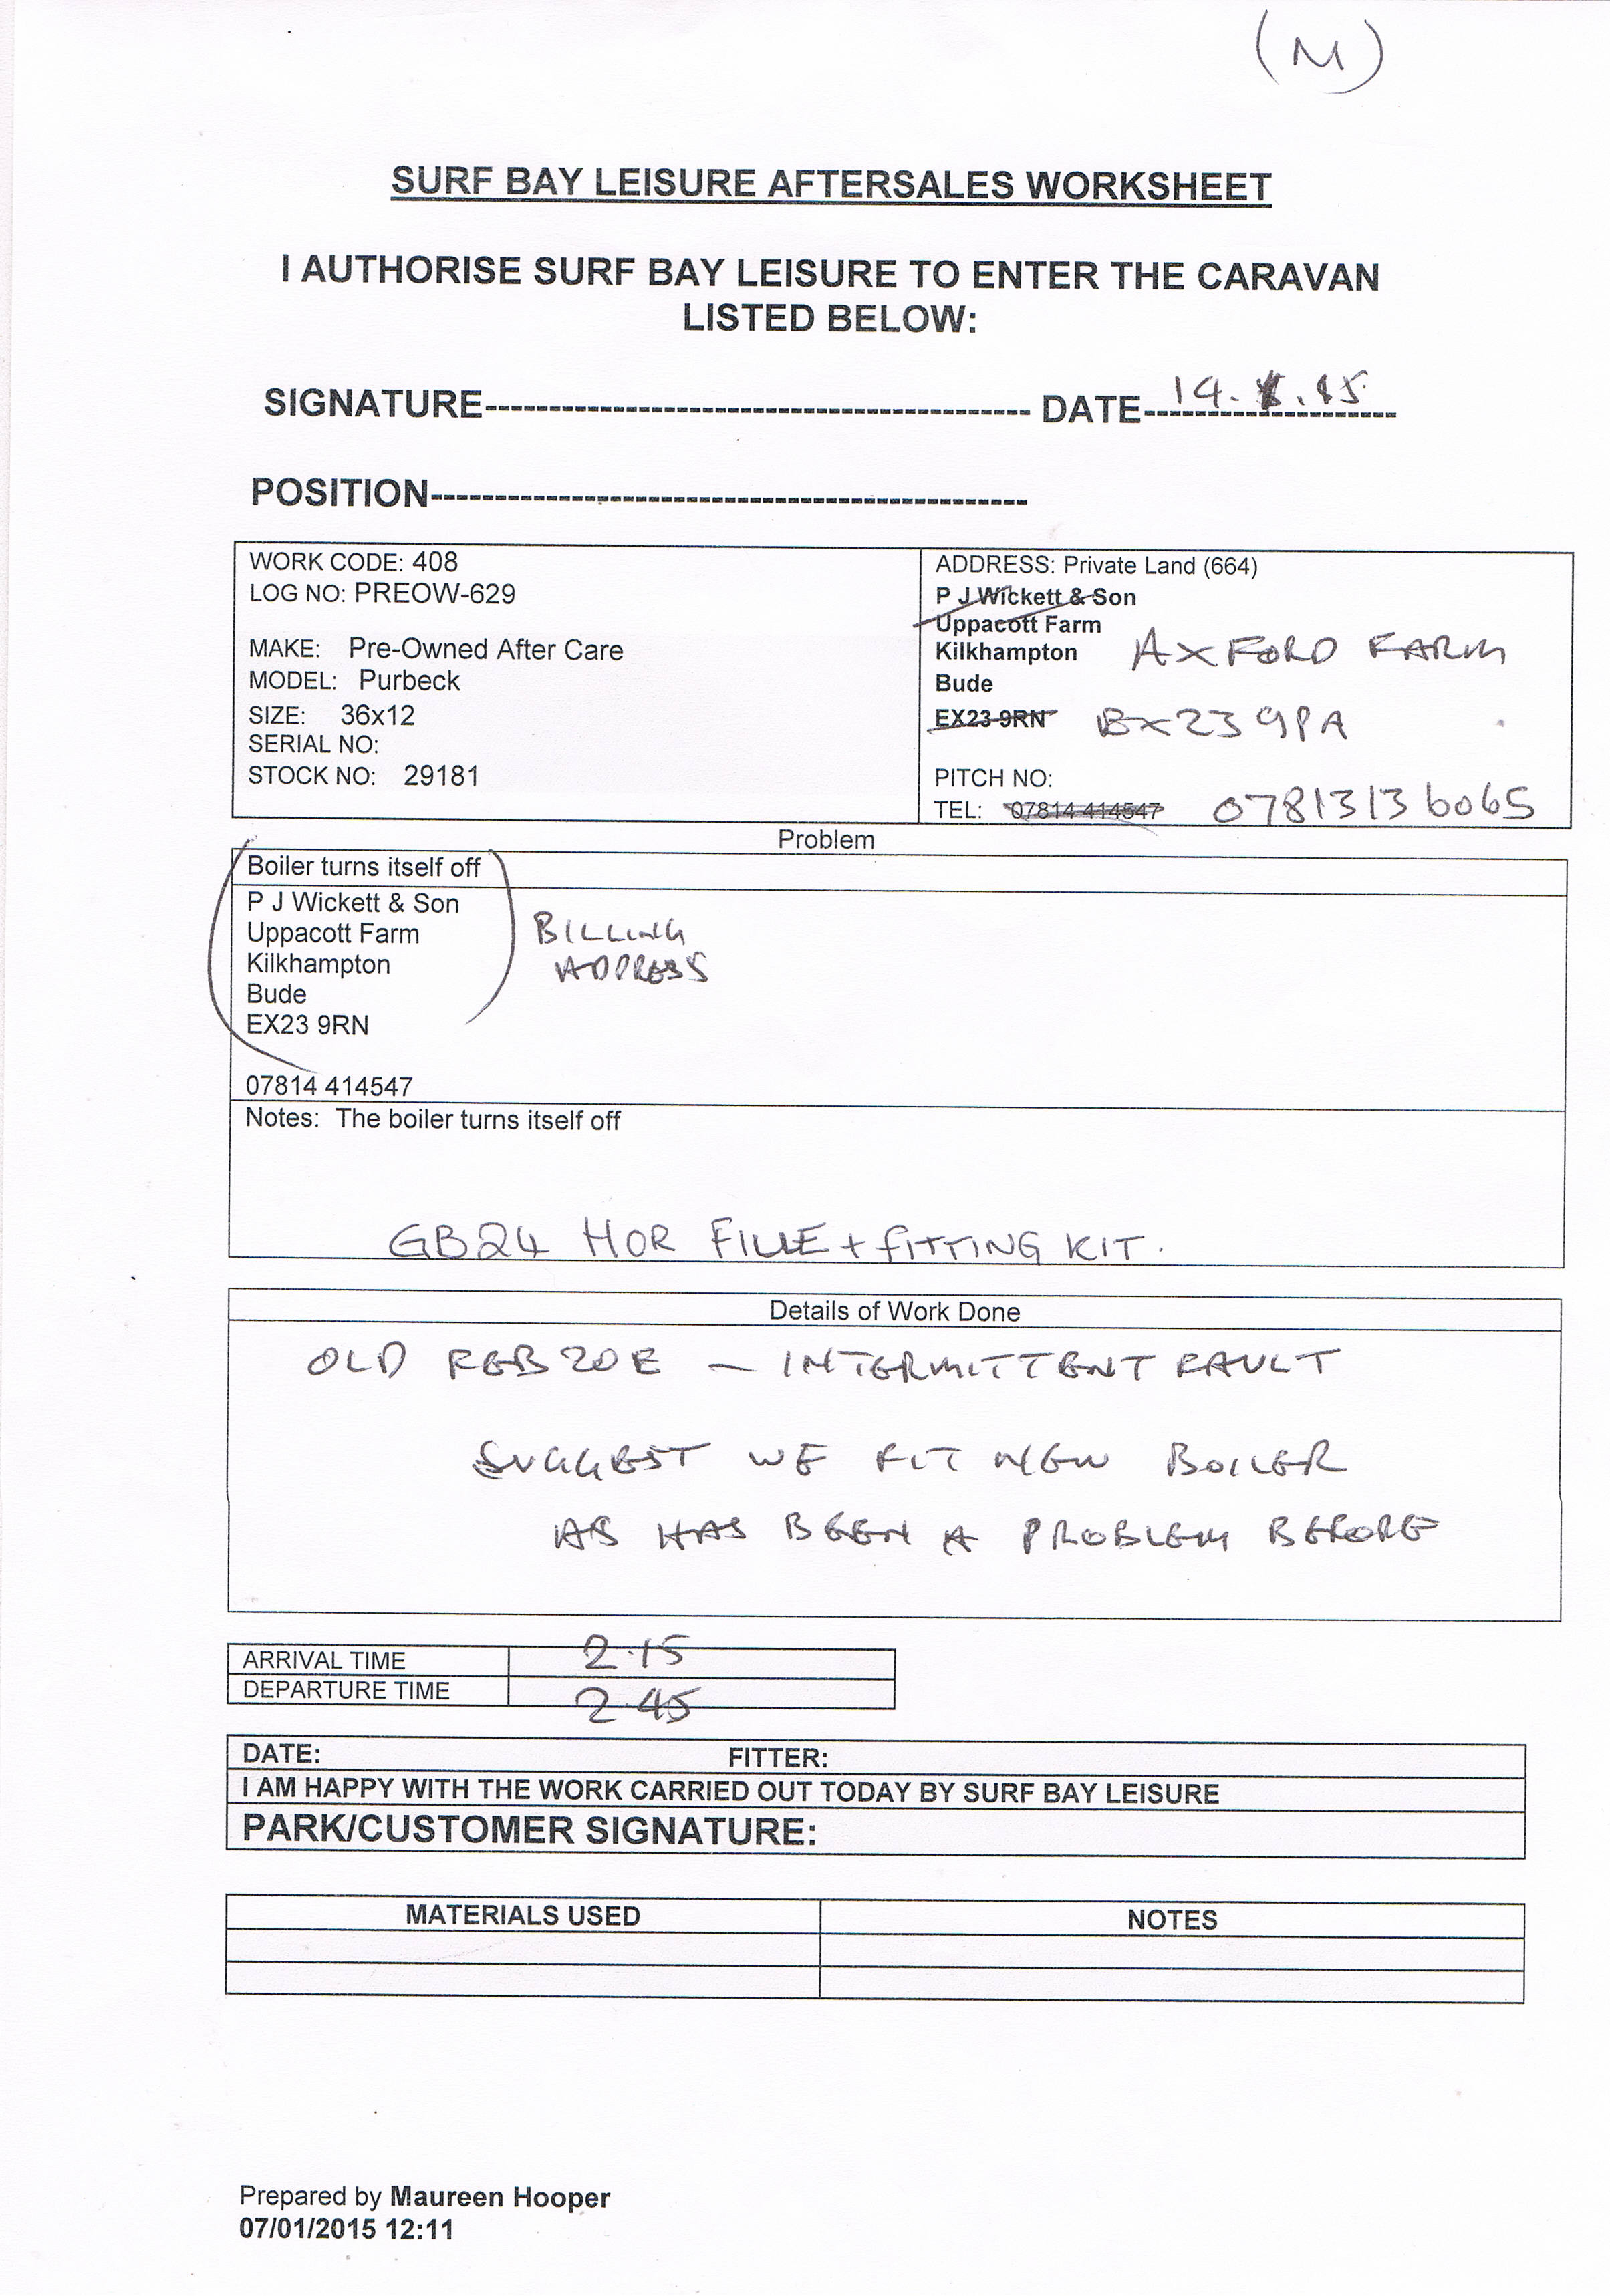 (M)
SURF BAY LEISURE AFTERSALES WORKSHEET
I AUTHORISE SURF BAY LEISURE TO ENTER THE CARAVAN
LISTED BELOW:
SIGNATURE------------------------------------------- DATE-------------------- 14. 1. 15.
POSITION-----------------------------------------------
WORK CODE: 408
LOG NO: PREOW-629
MAKE: Pre-Owned After Care
MODEL: Purbeck
SIZE: 36x12
SERIAL NO:
STOCK NO: 29181
ADDRESS: Private Land (664)
P J Wickett & Son
Uppacott Farm
Kilkhampton AXFORD FARM
Bude
EX23 9RN EX23 9PA
PITCH NO:
TEL: 07814 414547 07813136065
Problem
Boiler turns itself off
P J Wickett & Son
Uppacott Farm
Kilkhampton
Bude
EX23 9RN
BILLING
ADDRESS
07814 414547
Notes: The boiler turns itself off
GB24 HOR FLUE + FITTING KIT.
Details of Work Done
OLD REB20E - INTERMITTENT FAULT
SUGGEST WE FIT NEW BOILER
AS HAS BEEN A PROBLEM BEFORE
ARRIVAL TIME 2.15
DEPARTURE TIME 2.45
DATE: FITTER:
I AM HAPPY WITH THE WORK CARRIED OUT TODAY BY SURF BAY LEISURE
PARK/CUSTOMER SIGNATURE:
MATERIALS USED NOTES
Prepared by Maureen Hooper
07/01/2015 12:11